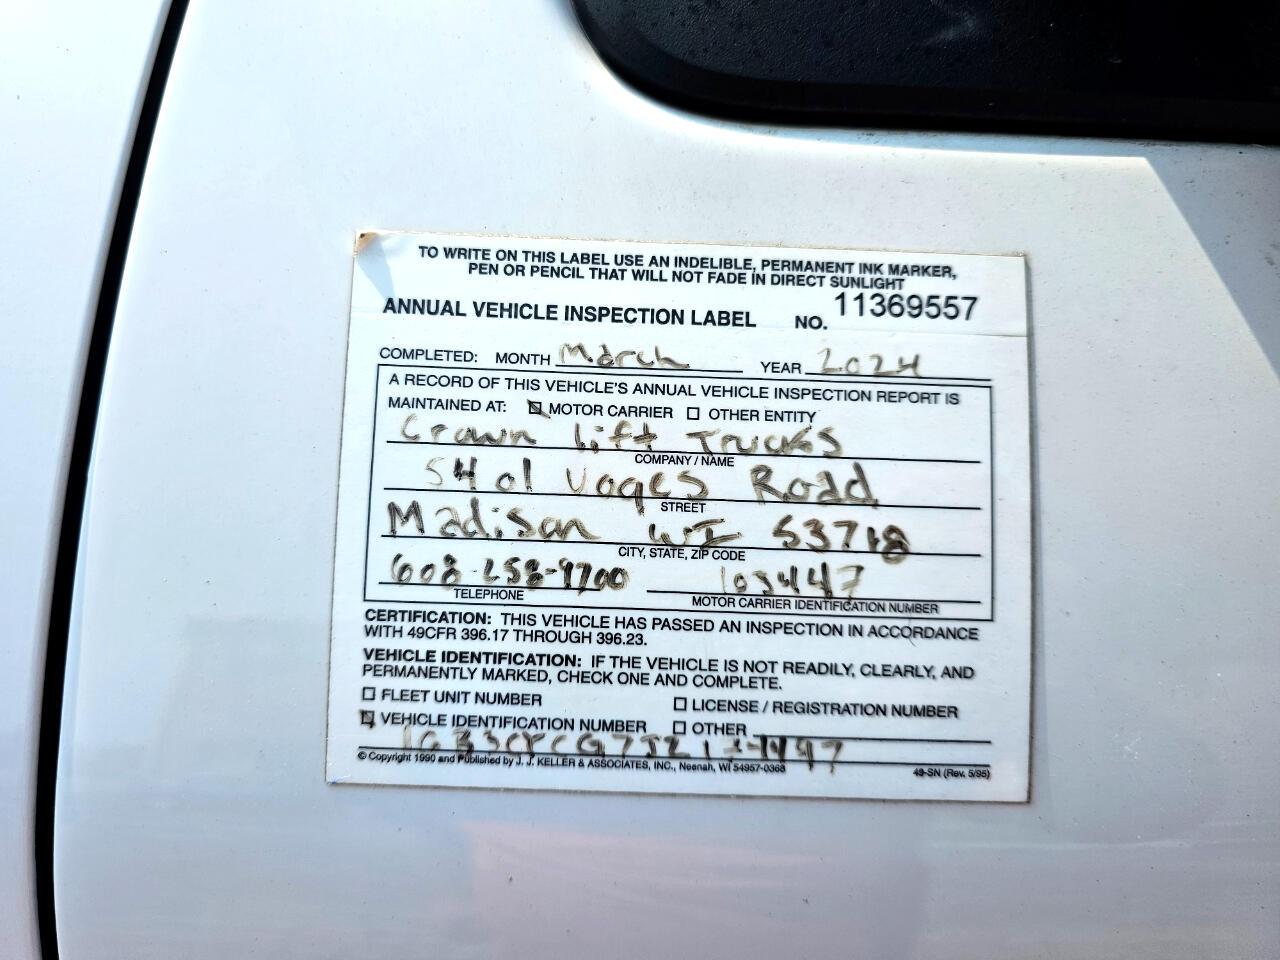 TO WRITE ON THIS LABEL USE AN INDELIBLE, PERMANENT INK MARKER,
PEN OR PENCIL THAT WILL NOT FADE IN DIRECT SUNLIGHT
ANNUAL VEHICLE INSPECTION LABEL NO. 11369557
COMPLETED: MONTH March YEAR 2024
A RECORD OF THIS VEHICLE'S ANNUAL VEHICLE INSPECTION REPORT IS
MAINTAINED AT: MOTOR CARRIER OTHER ENTITY
Crown Lift Trucks
COMPANY / NAME
5401 Voges Road
STREET
Madison WI 53718
CITY, STATE, ZIP CODE
608-258-9700 103447
TELEPHONE MOTOR CARRIER IDENTIFICATION NUMBER
CERTIFICATION: THIS VEHICLE HAS PASSED AN INSPECTION IN ACCORDANCE
WITH 49CFR 396.17 THROUGH 396.23.
VEHICLE IDENTIFICATION: IF THE VEHICLE IS NOT READILY, CLEARLY, AND
PERMANENTLY MARKED, CHECK ONE AND COMPLETE.
FLEET UNIT NUMBER LICENSE / REGISTRATION NUMBER
VEHICLE IDENTIFICATION NUMBER OTHER
© Copyright 1990 and Published by J. J. KELLER & ASSOCIATES, INC., Neenah, WI 54957-0368 49-SN (Rev. 5/95)